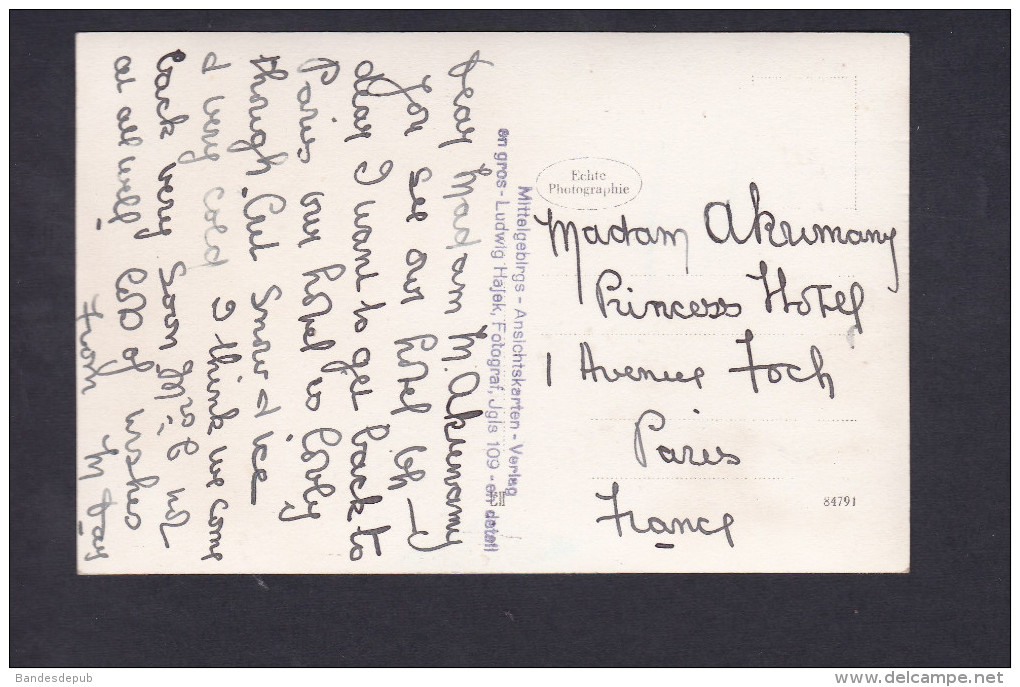 Dear Madam M. Akrumany
You see our hotel Oh
dear I want to get back to
Paris our hotel is lovly
though, but Snow & ice
& very cold I think we come
back very soon Mr
at all well Lots of wishes
from M Day
Mittelgebirgs - Ansichtskarten - Verlag
en gros - Ludwig Hajek, Fotograf, Jgls 109 - en detail
Echte
Photographie
Madam Akrumany
Princess Hotel
1 Avenue Foch
Paris
France
84791
Bandesdepub
www.delcampe.net